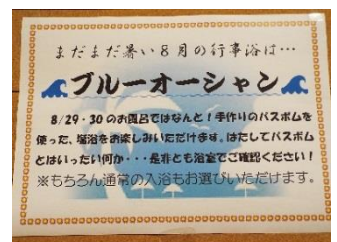 まだまだ暑い8月の行事浴は…
ブルーオーシャン
8/29・30のお風呂ではなんと！手作りのバスボムを
使った、塩浴をお楽しみいただけます。はたしてバスボム
とはいったい何か・・・是非とも浴室でご確認ください！
※もちろん通常の入浴もお選びいただけます。